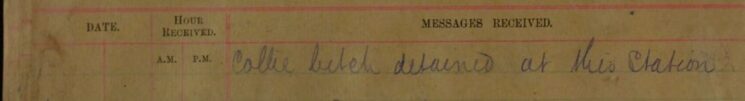 DATE. HOUR RECEIVED. MESSAGES RECEIVED.
A.M. P.M. Collie bitch detained at this Station